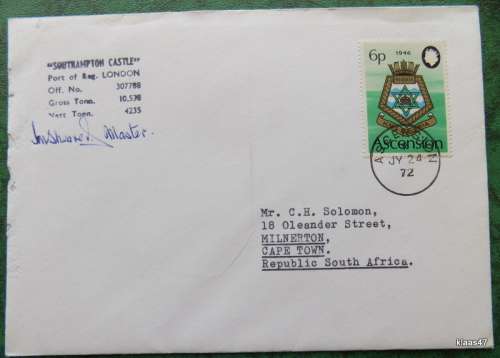 "SOUTHAMPTON CASTLE"
Port of Reg. LONDON
Off. No. 307788
Gross Tons. 10,538
Nett Tons. 4235
Master.
6p 1946
Ascension
JY 24
72
Mr. C.H. Solomon,
18 Oleander Street,
MILNERTON,
CAPE TOWN.
Republic South Africa.
klaas47